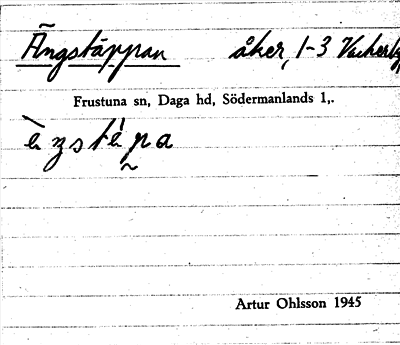 Ängstäppan åker, 1-3 Vackerby
Frustuna sn, Daga hd, Södermanlands l,.
Artur Ohlsson 1945